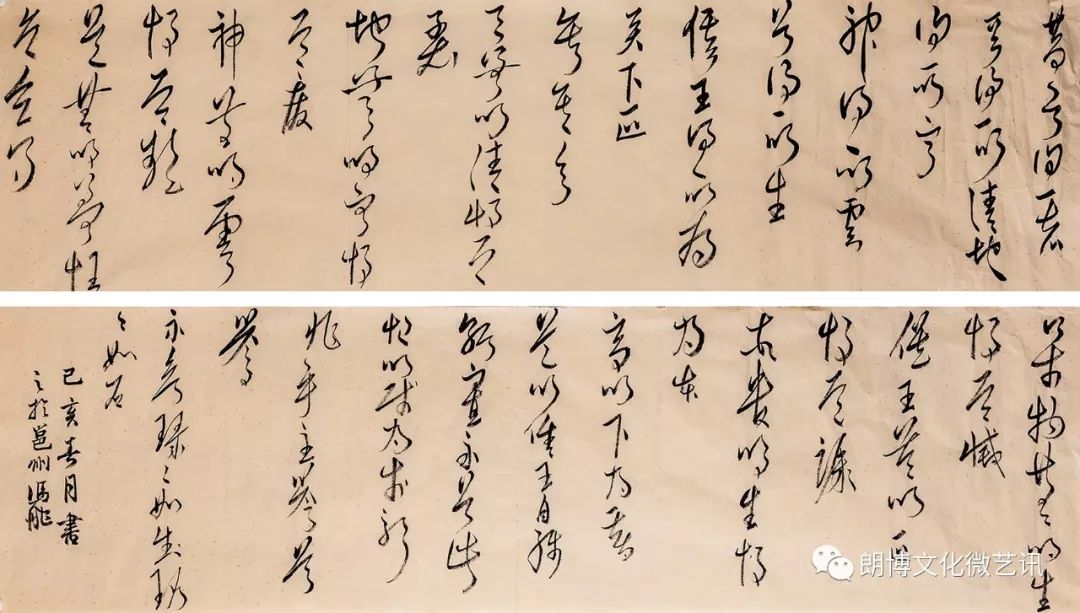 昔之得一者
天得一以清地
得一以寧
神得一以靈
谷得一以生
侯王得一以為
天下正
其致之
天無以清將恐
裂
地無以寧將
恐廢
神無以靈
將恐歇
谷無以盈將
恐
萬物無以生
將恐滅
侯王無以正
將恐
故貴以將
為本
高以下為基
是以侯王自稱
孤寡不穀此
非以賤為本邪
非乎至譽無
譽
不欲琭〻如玉珞
〻如石
己亥春月書
之於邕州
朗博文化微艺讯